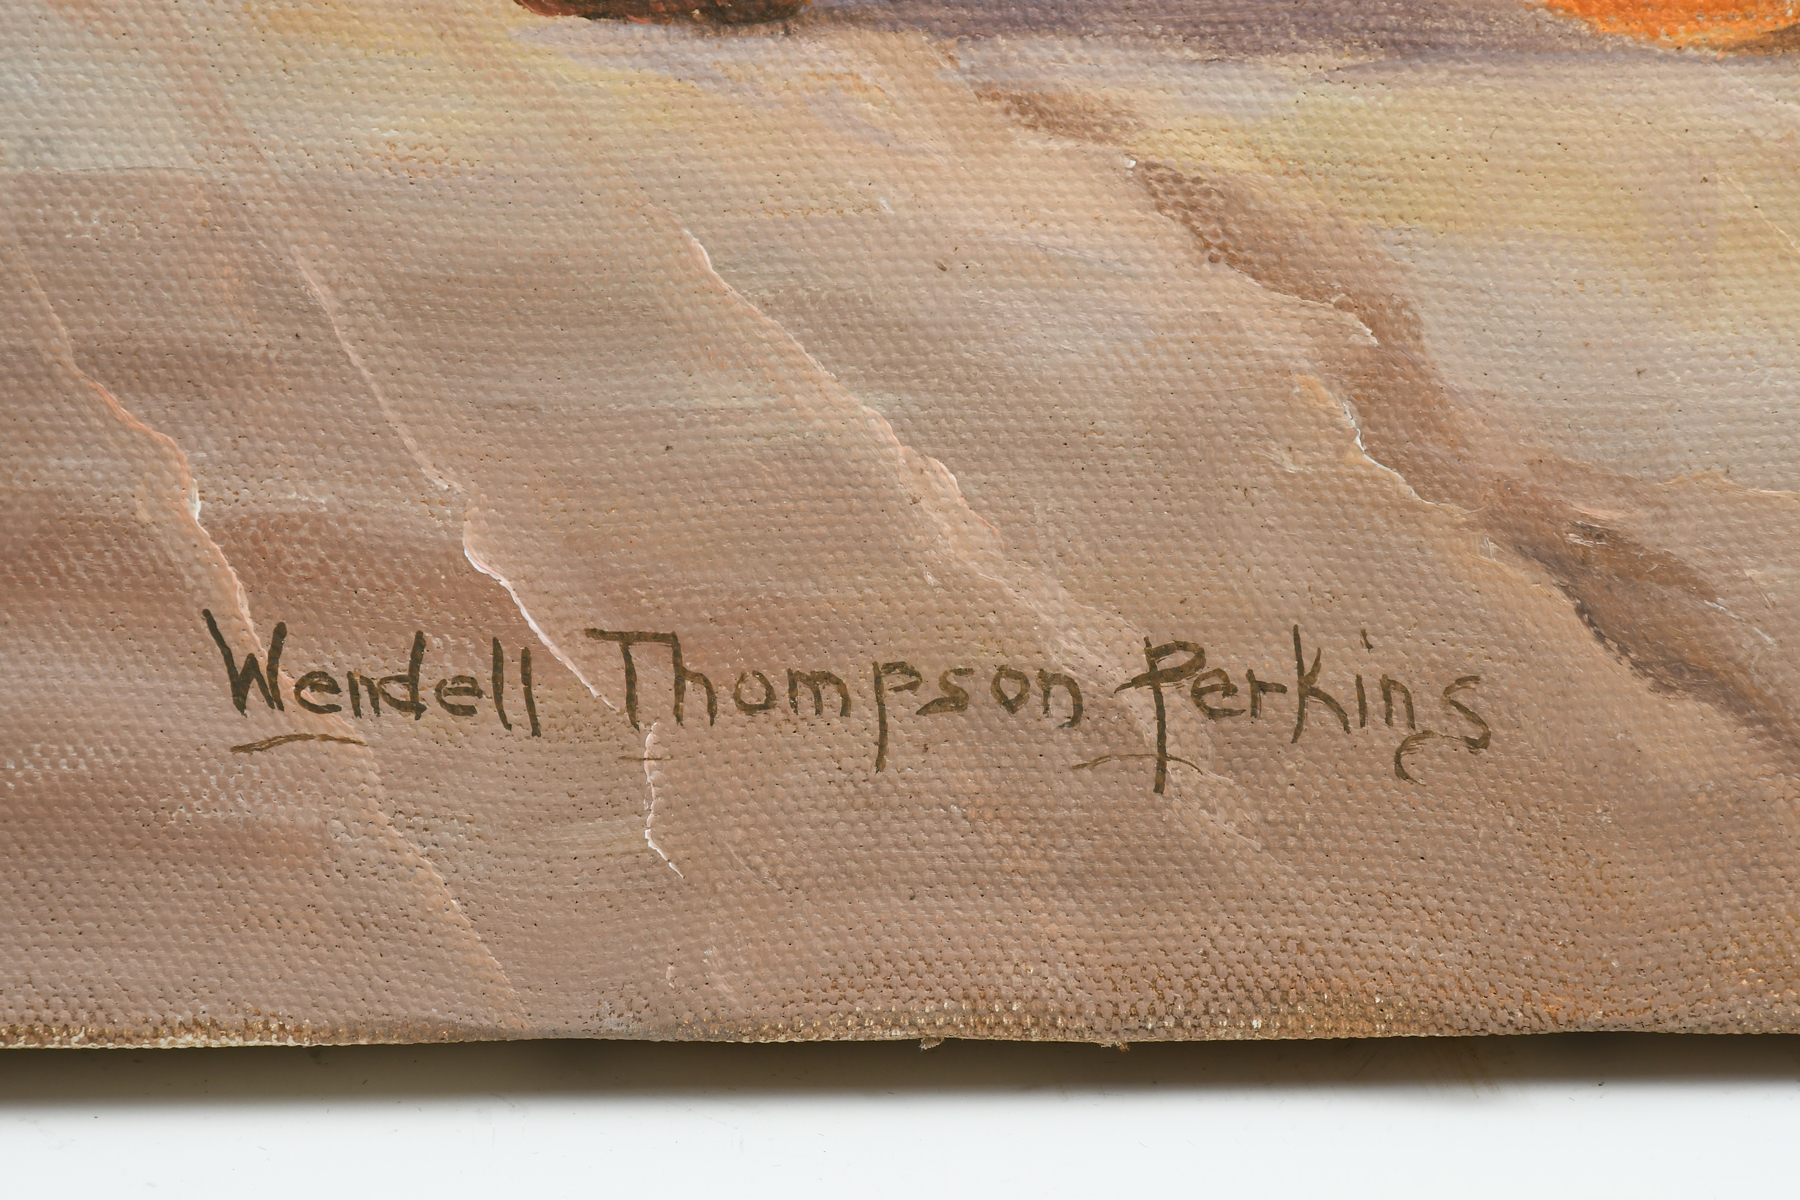 Wendell Thompson Perkins